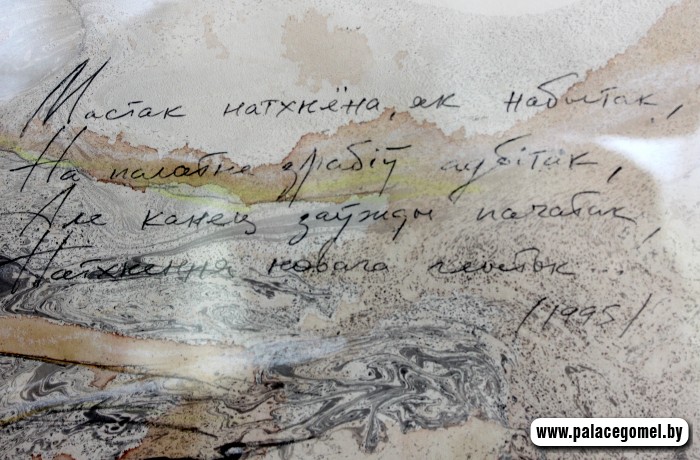 Мастак натхнёна, як набытак,
На палатне зрабіў
Але канец заўжды пачатак,
Натхнення новага глыток...
/1995/
www.palacegomel.by